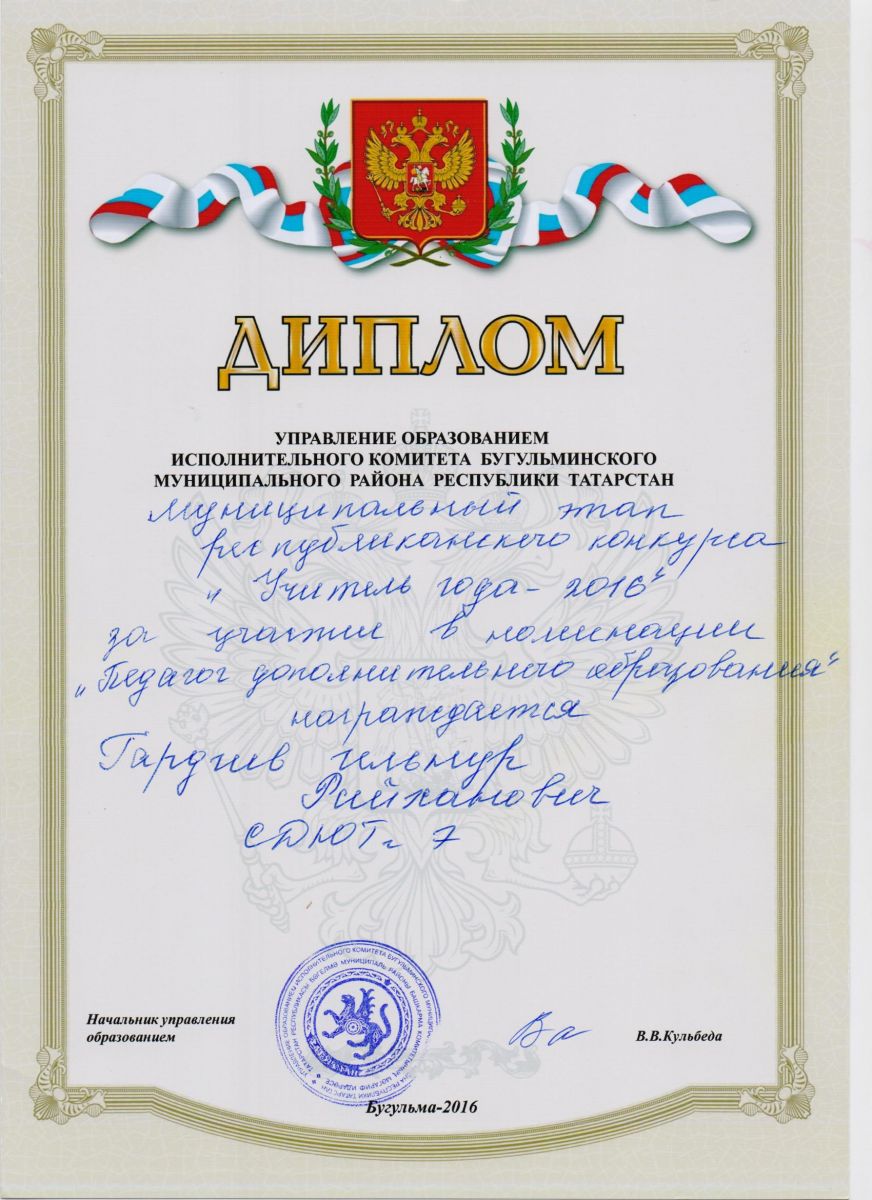 ДИПЛОМ
УПРАВЛЕНИЕ ОБРАЗОВАНИЕМ
ИСПОЛНИТЕЛЬНОГО КОМИТЕТА БУГУЛЬМИНСКОГО
МУНИЦИПАЛЬНОГО РАЙОНА РЕСПУБЛИКИ ТАТАРСТАН
Муниципальный этап
республиканского конкурса
„ Учитель года - 2016"
за участие в номинации
„Педагог дополнительного образования"
награждается
Гардиев Ильнур
Райханович
СДЮТ 7
Начальник управления
образованием
В.В.Кульбеда
Бугульма-2016